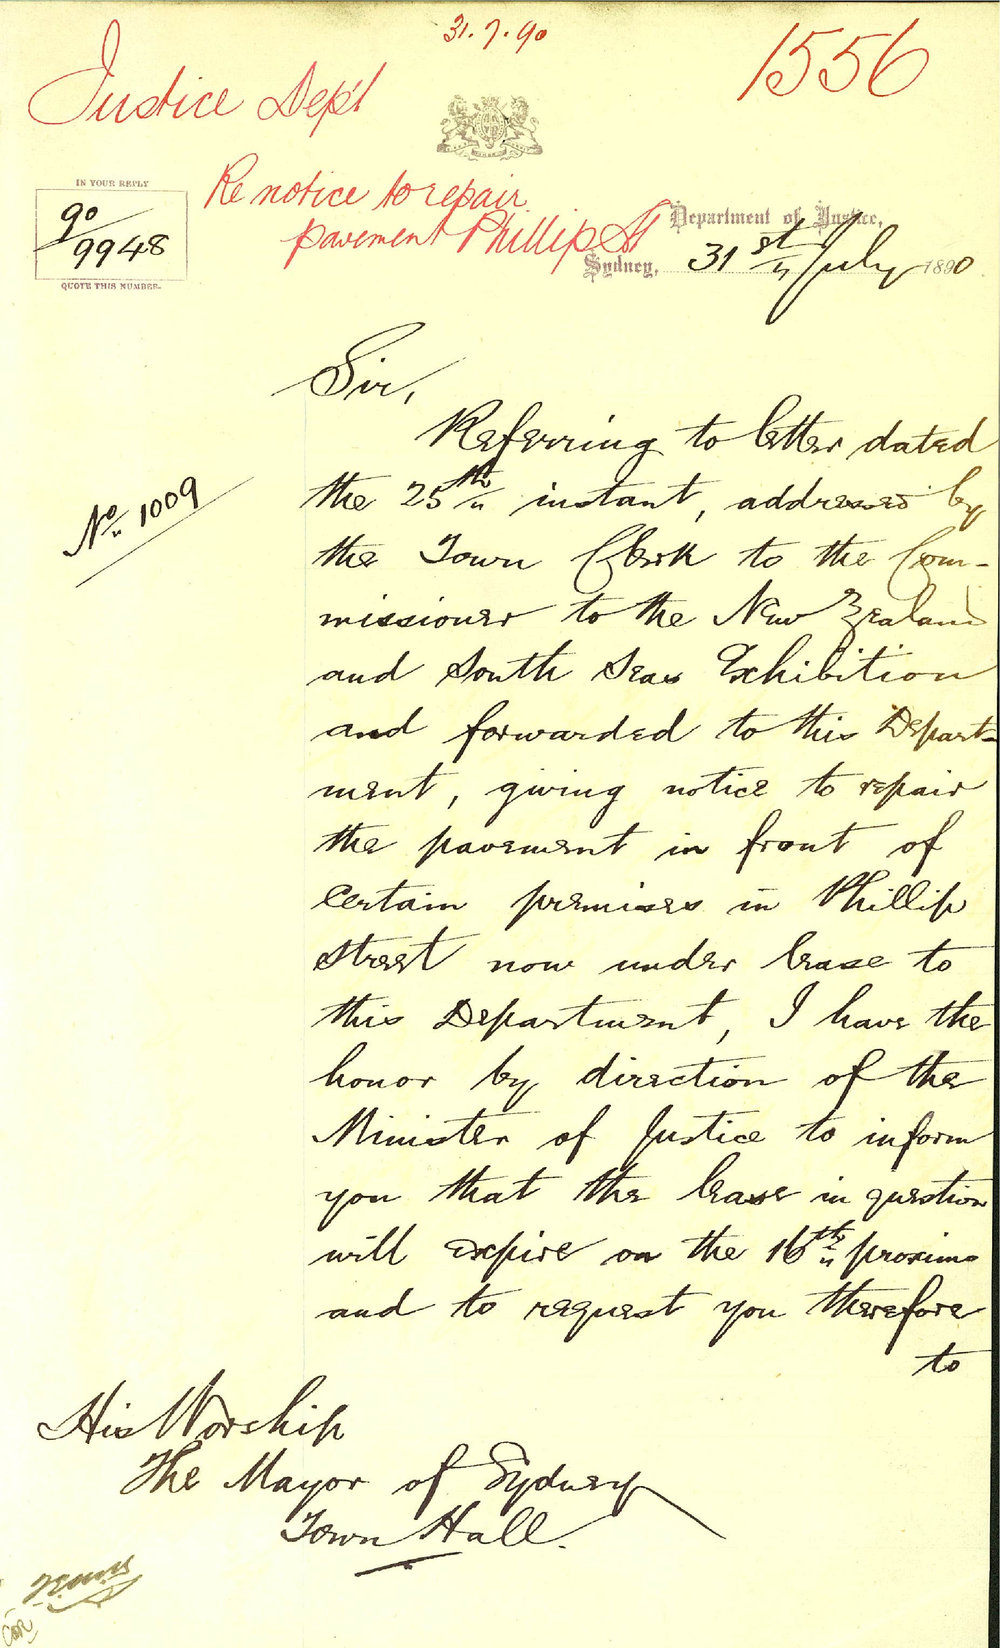 31.7.90
1556
Justice Dep't
Re notice to repair
pavement Phillip St
IN YOUR REPLY
90/9948
QUOTE THIS NUMBER.
Department of Justice,
Sydney, 31st July 1890
Sir,
Referring to letter dated
No. 1009
the 25th instant, addressed by
the Town Clerk to the Com-
missioner to the New Zealand
and South Seas Exhibition
and forwarded to this Depart-
ment, giving notice to repair
the pavement in front of
certain premises in Phillip
Street now under lease to
this Department, I have the
honor by direction of the
Minister of Justice to inform
you that the lease in question
will expire on the 16th proximo
and to request you therefore
to
His Worship
The Mayor of Sydney
Town Hall.